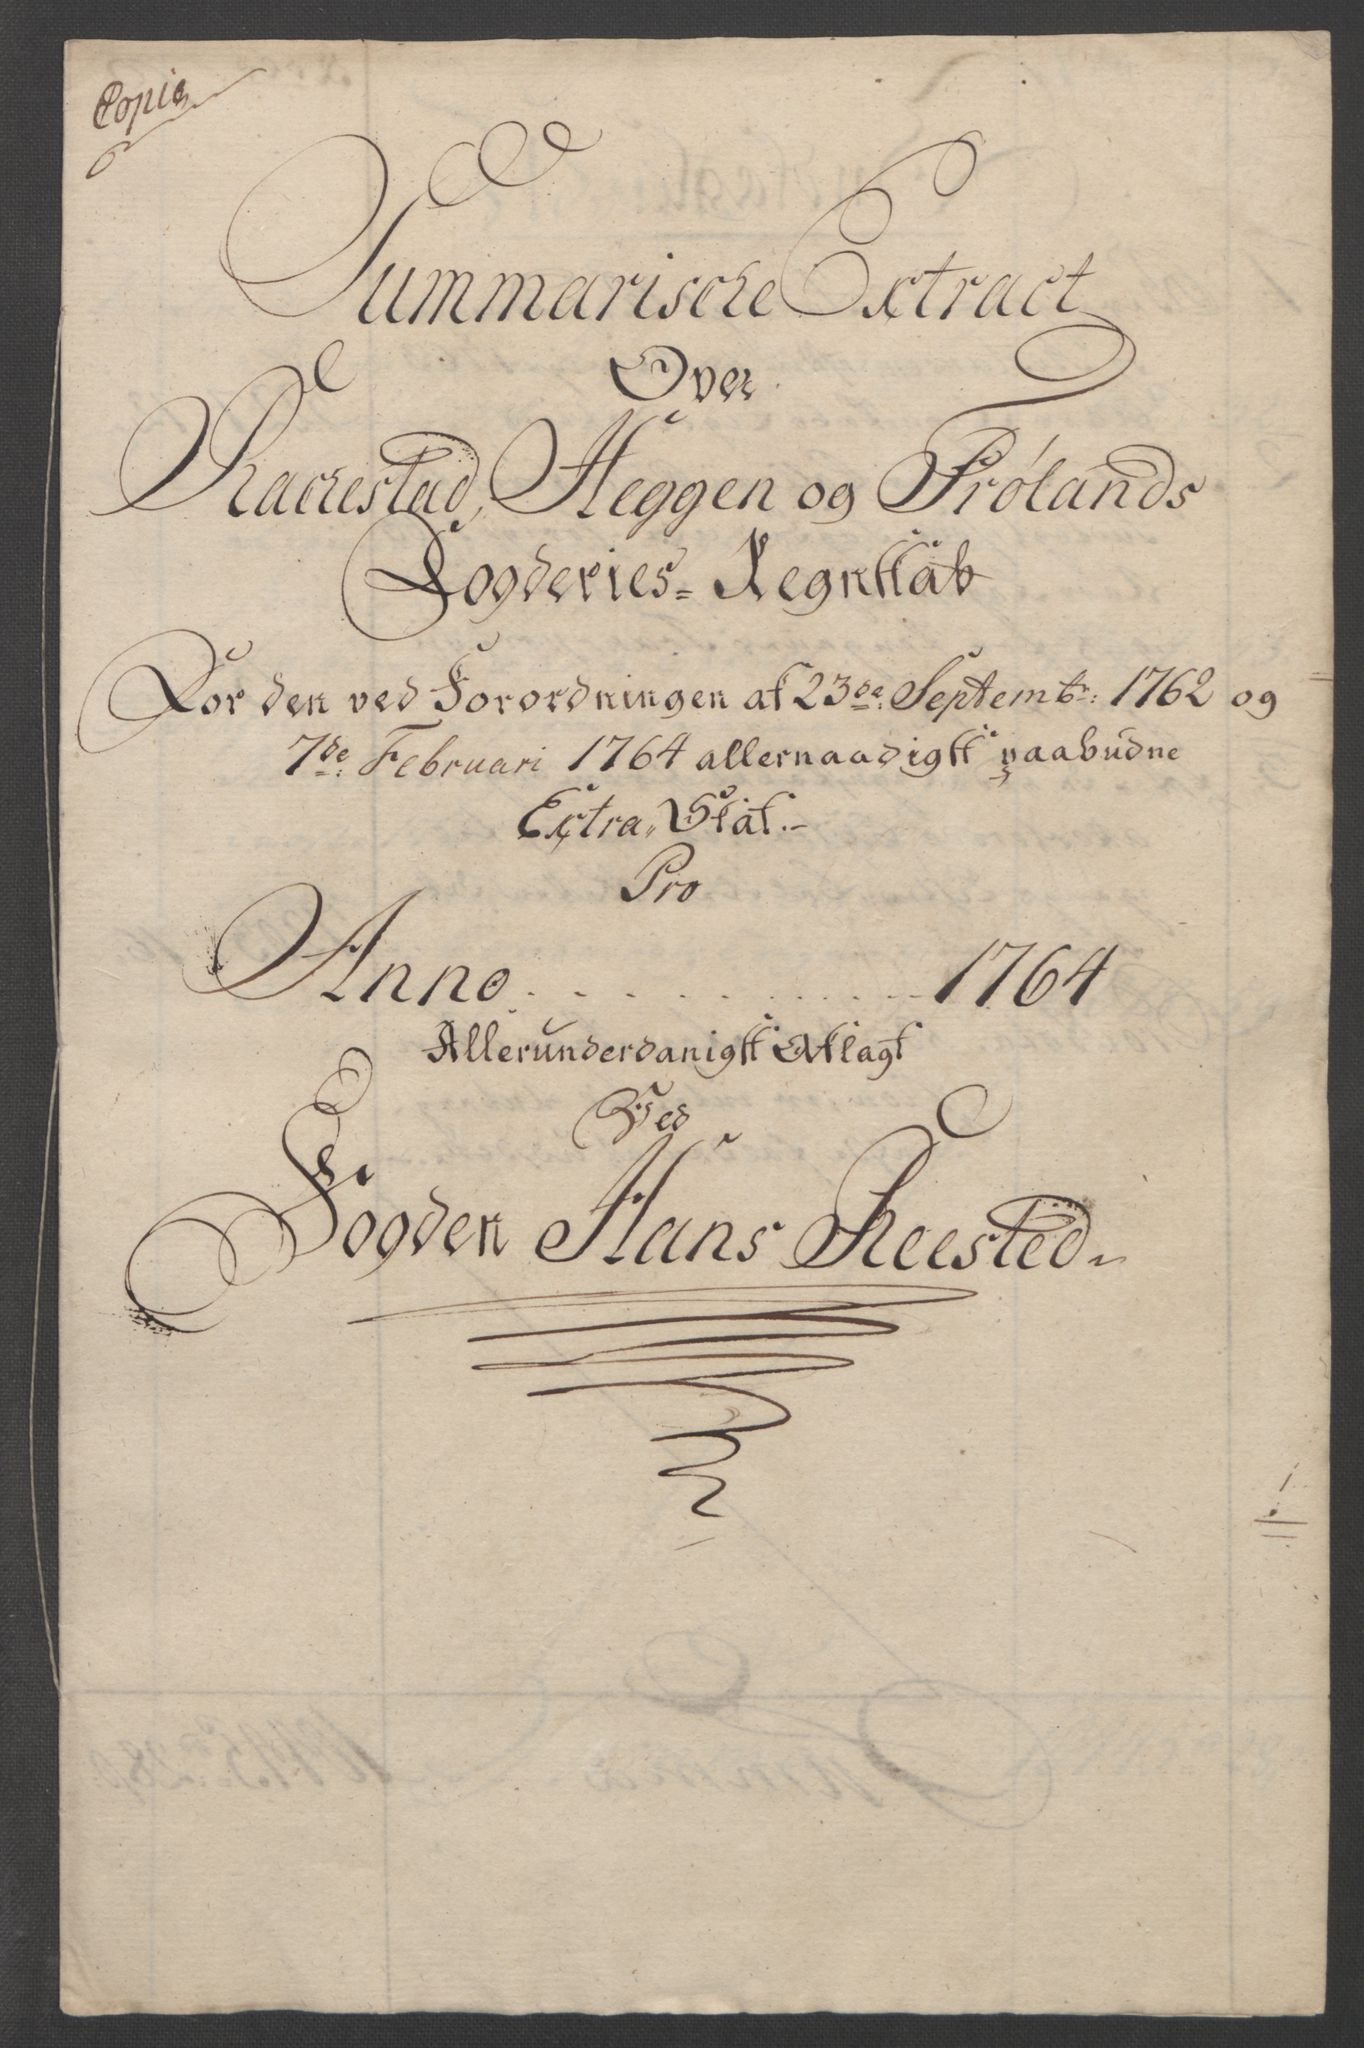 Copia
Summarische Extract
Over
Rackestad, Heggen og Frølands
Fogderies= Regnskab
For den ved Forordningen af 23de: Septembr: 1762 og
7de: Februari 1764 allernaadigst paabudne
Extra, Skat.
Pro
Anno . . . . . . . . . . . 1764
Allerunderdanigst Aflagt
Ved
Fogden Hans Reested